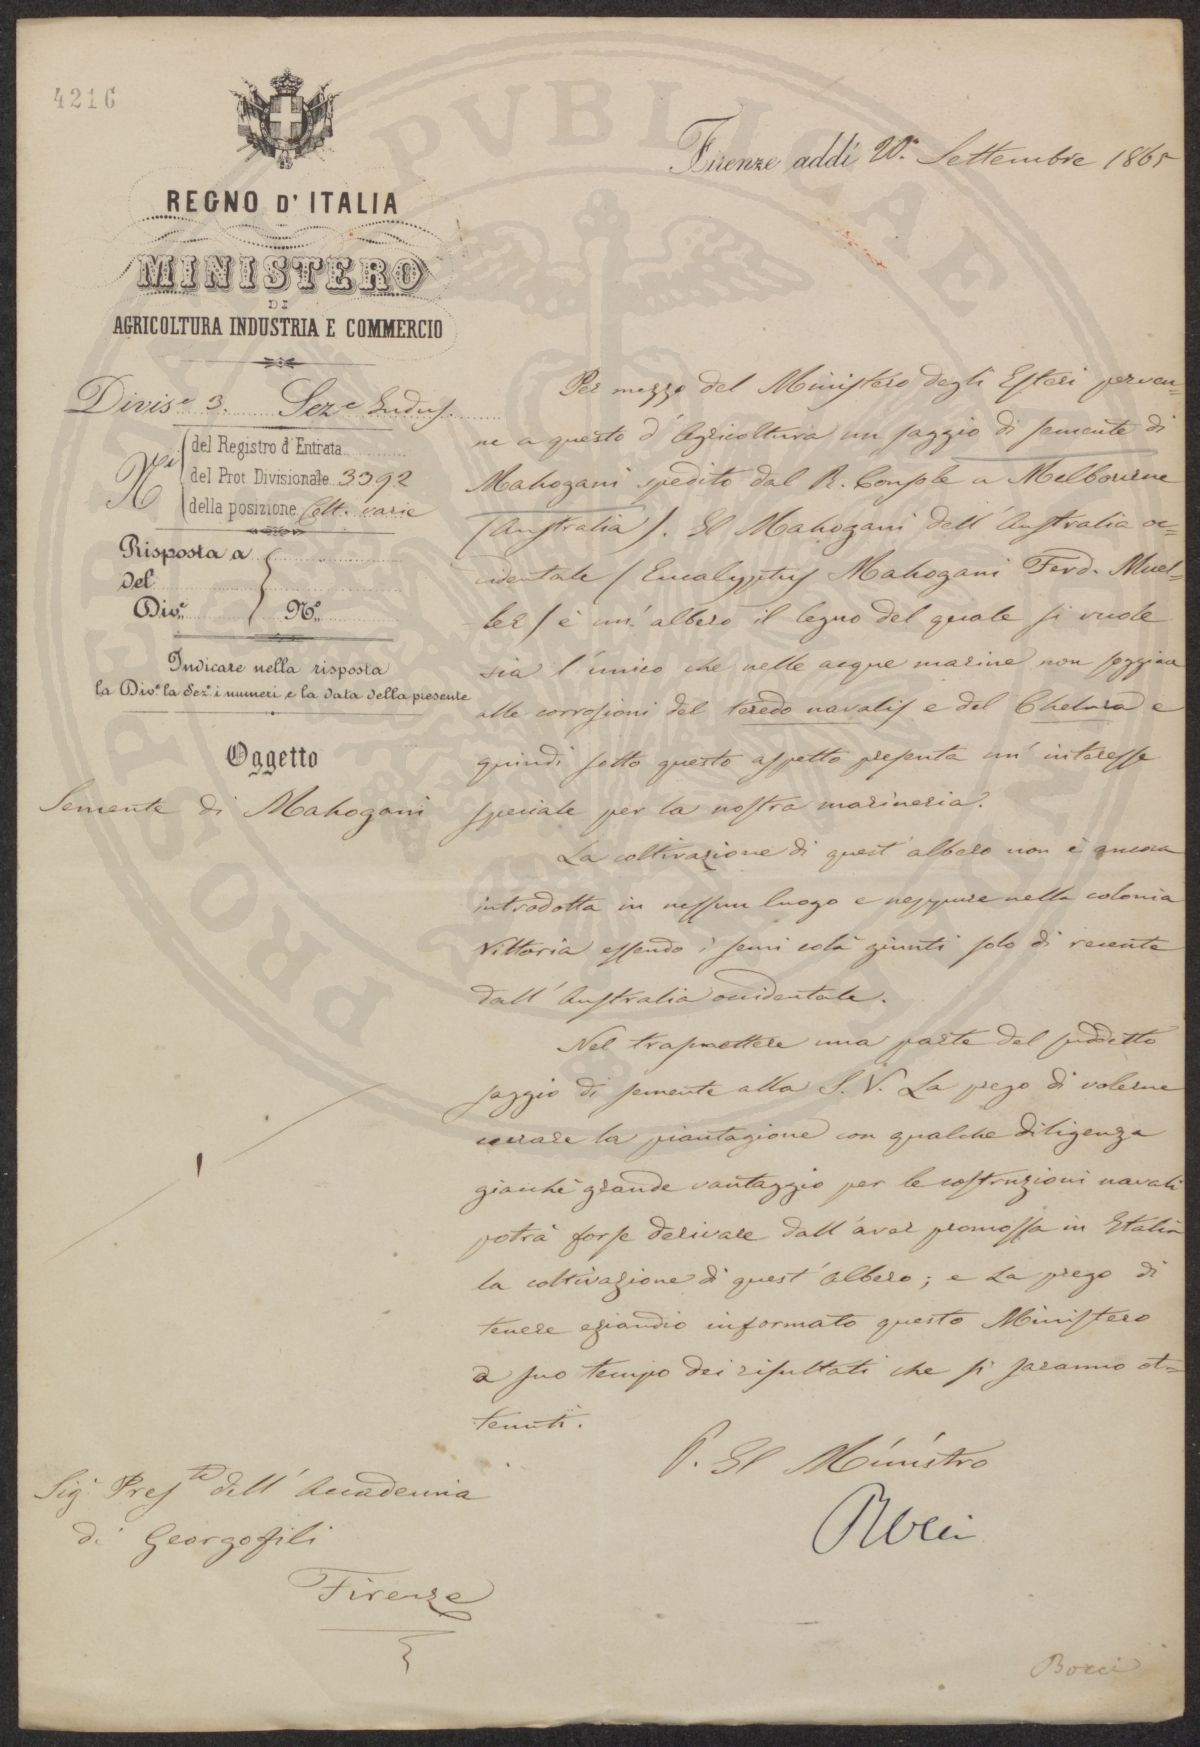 4216
REGNO D' ITALIA
MINISTERO
DI
AGRICOLTURA INDUSTRIA E COMMERCIO
Divis.e 3. Sez.e Indus.
N.i
del Registro d' Entrata
del Prot Divisionale 3392
della posizione Colt. varie
Risposta a
del
Div.e N.o
Indicare nella risposta
la Div.e la Sez.e i numeri e la data della presente
Oggetto
Semente di Mahogani
Firenze addì 20. Settembre 1865
Per mezzo del Ministero degli Esteri perven=
ne a questo d'Agricoltura un saggio di semente di
Mahogani spedito dal R. Console a Melbourne
(Australia). Il Mahogani dell'Australia oc=
cidentale (Eucalyptus Mahogani Ferd. Muel=
ler) è un'albero il legno del quale si vuole
sia l'unico che nelle acque marine non soggiaccia
alle corrosioni del teredo navalis e del Chelura e
quindi sotto questo aspetto presenta un'interesse
speciale per la nostra marineria.
La coltivazione di quest'albero non è ancora
introdotta in nessun luogo e neppure nella colonia
Vittoria essendo i semi colà giunti solo di recente
dall'Australia occidentale.
Nel trasmettere una parte del suddetto
saggio di semente alla S. V. La prego di volerne
curare la piantagione con qualche diligenza
giacchè grande vantaggio per le costruzioni navali
potrà forse derivare dall'aver promossa in Italia
la coltivazione di quest'albero; e La prego di
tenere eziandio informato questo Ministero
a suo tempo dei risultati che si saranno ot=
tenuti.
P. Il Ministro
Sig. Pres.te dell'Accademia
di Georgofili
Firenze
PROSPERITATI PVBLICAE AVGENDAE